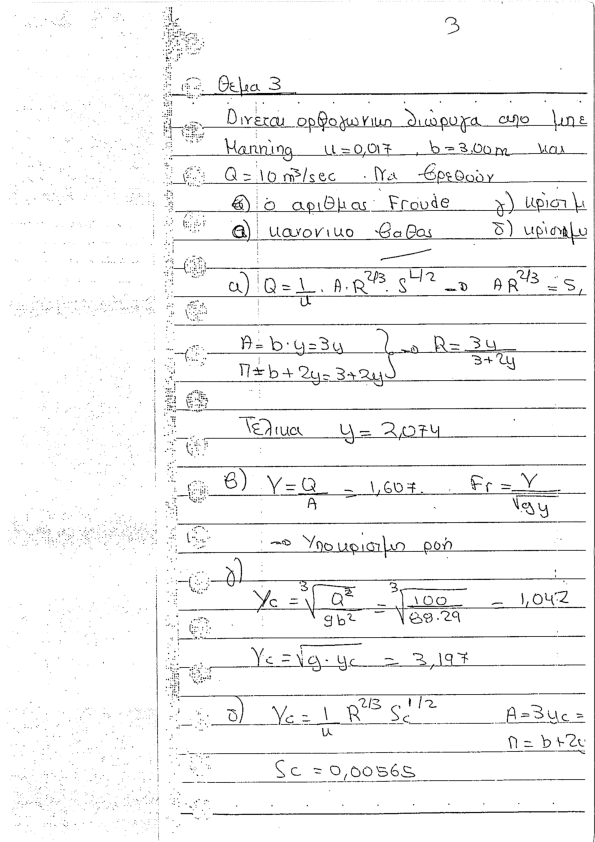 3
Θεμα 3
Δινεται ορθογωνικη διωρυγα απο μπε
Manning n=0,017 , b=3.00m και
Q = 10 m³/sec . Να βρεθουν
β) ο αριθμος Froude γ) κρισιμ
α) κανονικο βαθος δ) κρισιμ
α) Q = 1/n . A . R^2/3 . S^1/2 → AR^2/3 = 5,
A = b·y = 3y } → R = 3y/(3+2y)
Π = b + 2y = 3+2y
Τελικα y = 2,074
β) V = Q/A = 1,607. Fr = V/√gy
→ Υποκρισιμη ροη
γ)
yc = ∛(Q²/gb²) = ∛(100/88.29) = 1,042
Vc = √g·yc = 3,197
δ) Vc = 1/n R^2/3 Sc^1/2 A = 3yc =
Π = b+2y
Sc = 0,00565